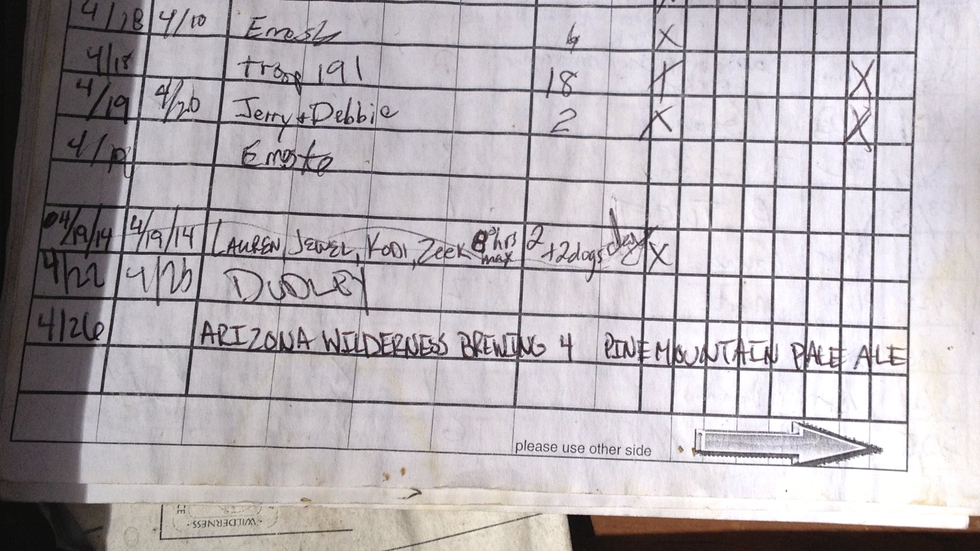 4/18 4/10 6 X
4/18 troop 191 18 X X
4/19 4/20 Jerry + Debbie 2 X X
4/19 Ernesto
04/19/14 4/19/14 LAUREN, JEWEL, KODI, ZEEK 8 hrs max 2 +2dogs X
4/22 4/23 DUDLEY
4/26 ARIZONA WILDERNESS BREWING 4 PINE MOUNTAIN PALE ALE
please use other side
WILDERNESS